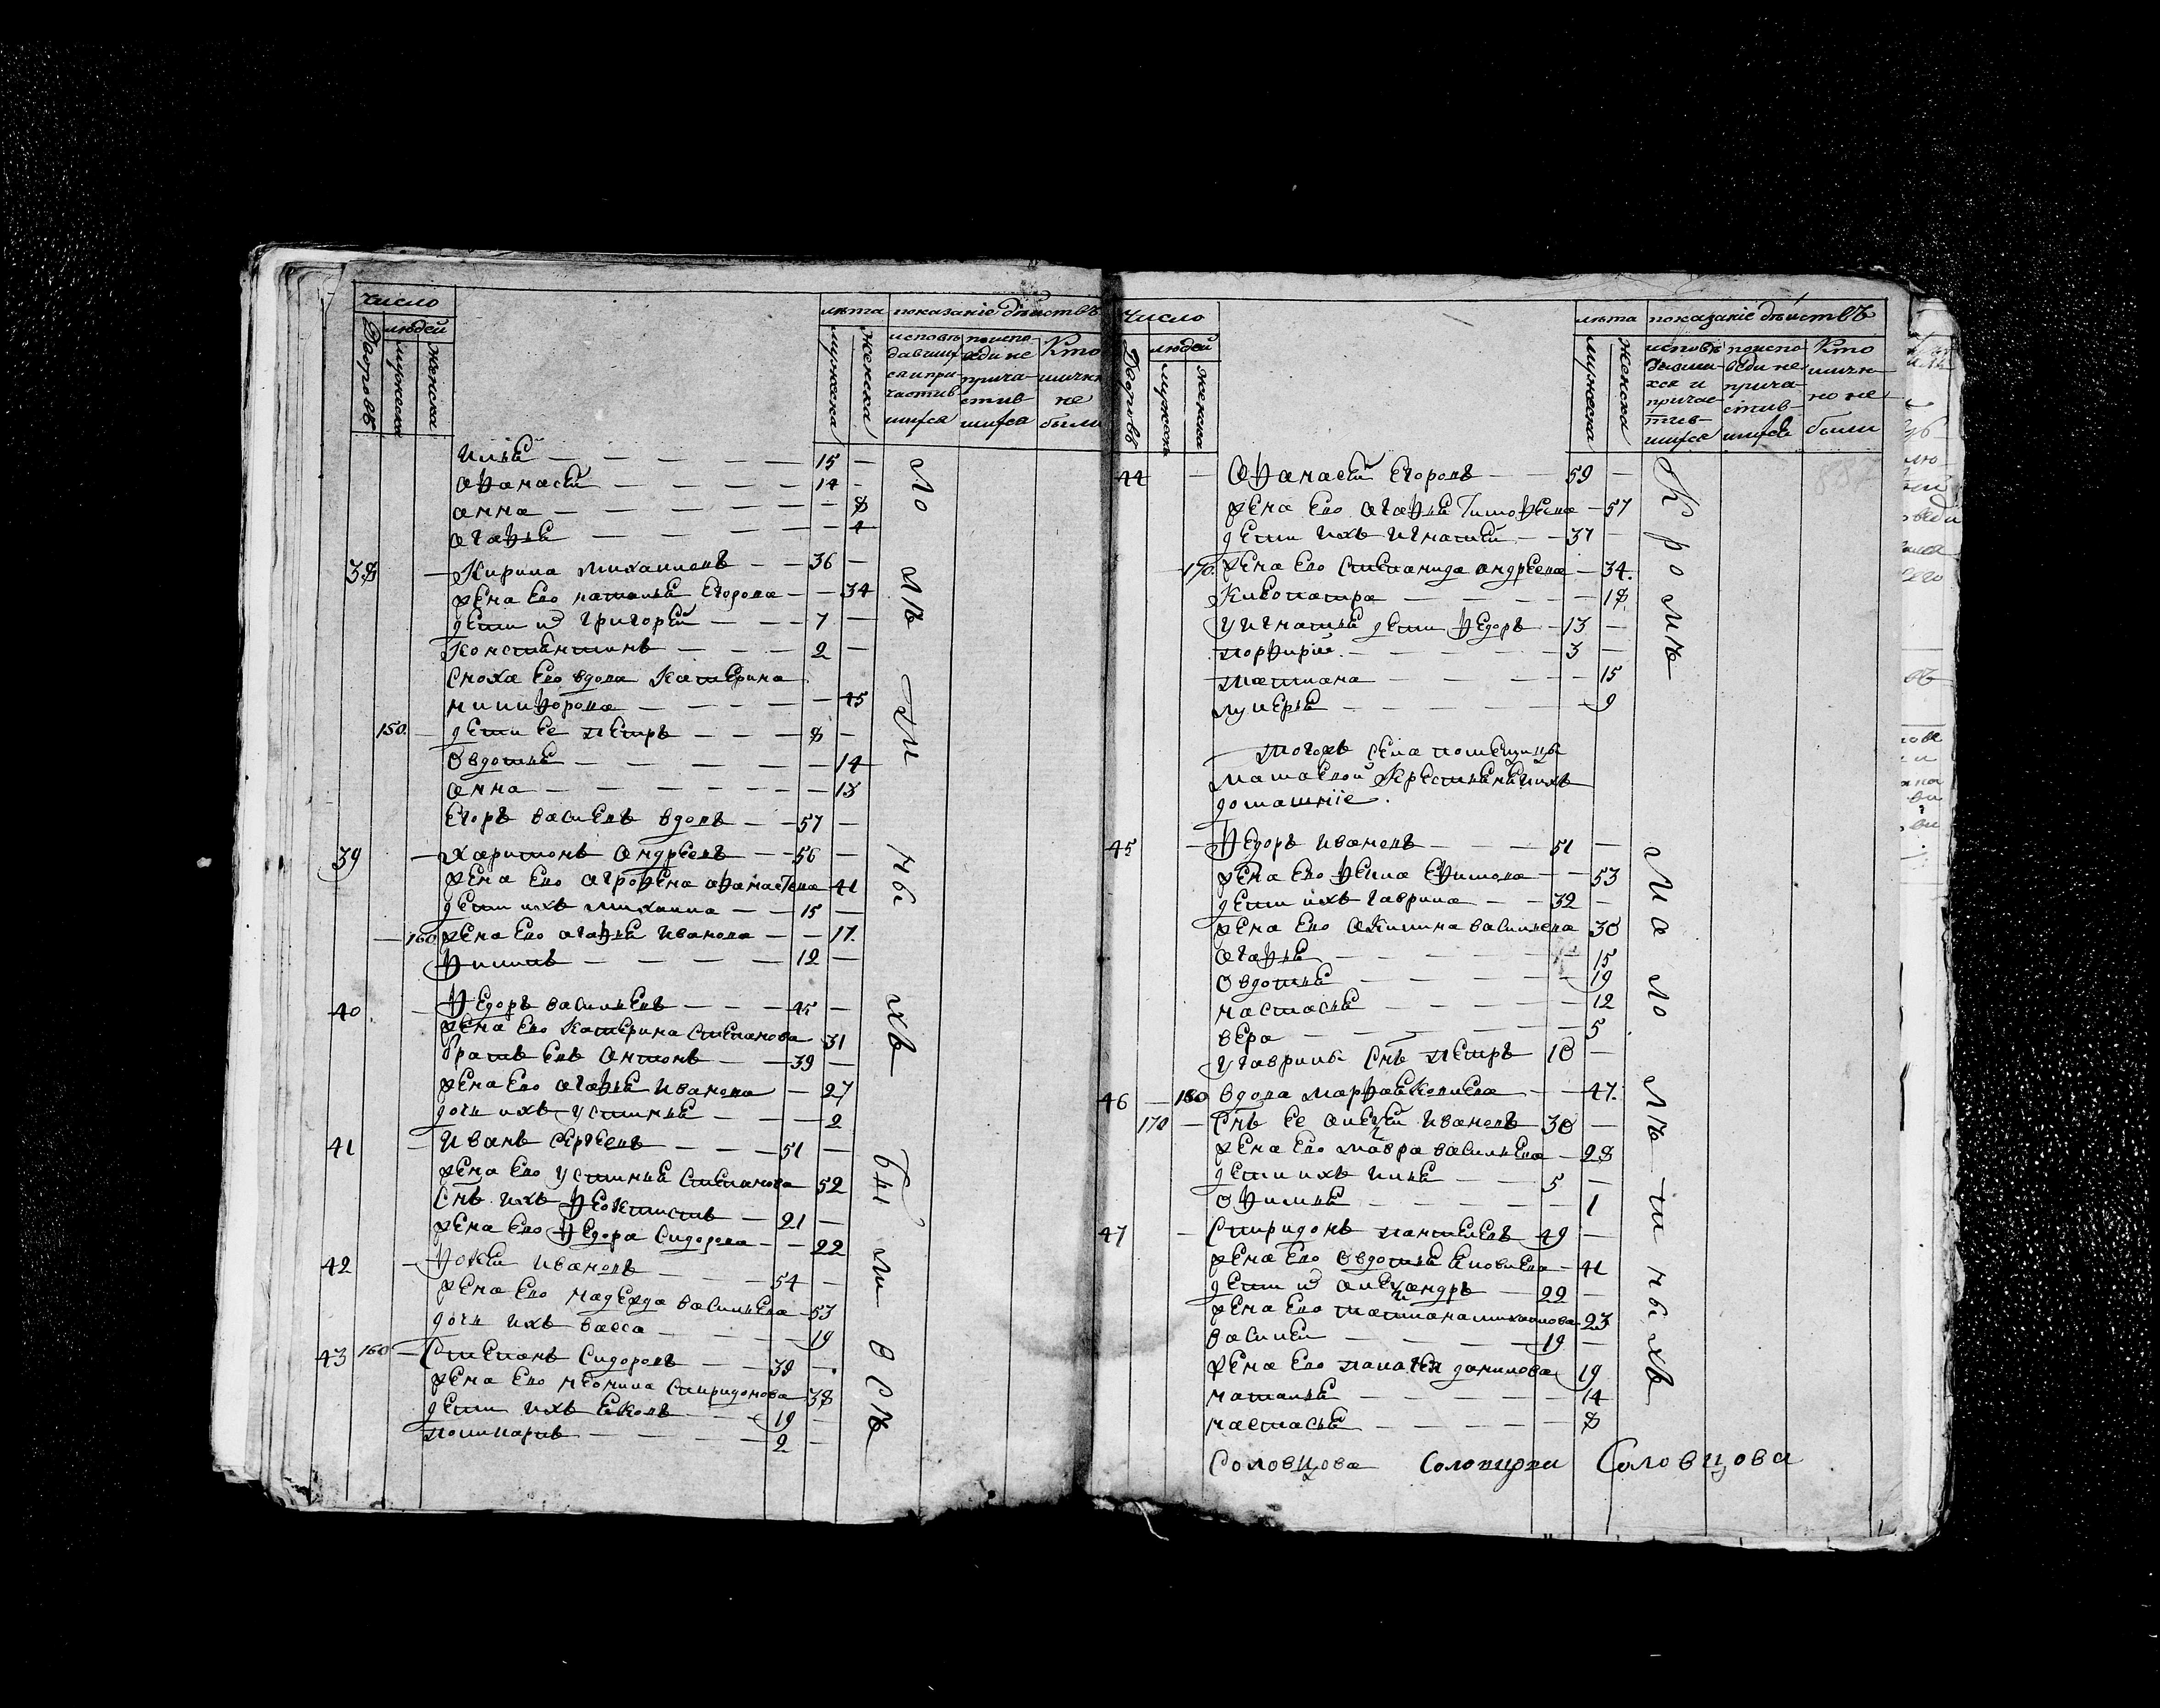 Число
людей
Дворовъ
мужеска
женска
лѣта
мужеска
женска
показаніе дѣиствъ
исповѣдавшихся и причастившихся
по исповеди не причастившихся
Кто не были
Илья — 15 —
Афанасей — 14 —
анна — — 8
агафья — — 4
38 — Кирила михаиловъ — 36 —
жена Ево наталья Егорова — — 34
дети их григорей — 7 —
Константинъ — 2 —
сноха Ево вдова Катерина
никифорова — — 45
150 — дети Ее петръ — 8 —
Овдотья — — 14
анна — — 13
Егоръ васильевъ вдовъ — 57 —
39 — харитонъ андреевъ — 56 —
жена Ево агрофена афанасьева — 41
дети ихъ михаила — 15 —
— 160 жена Ево агафья Иванова — — 17
филипъ — 12 —
40 — федоръ васильевъ — 45 —
жена Ево Катерина степанова 31
братъ Евъ антонъ — 39 —
жена Ево агафья Иванова — 27
дочь ихъ устинья — — 2
41 — Иванъ сергеевъ — 51 —
жена Ево устинья степанова 52
снъ ихъ феоктистъ — 21 —
жена Ево федора сидорова — — 22
42 — фокеи Ивановъ — 54 —
жена Ево надежда васильева — 53
дочь ихъ васса — — 19
43 160 — степанъ сидоровъ — 39 —
жена Ево неонила спиридонова 38
дети ихъ яковъ — 19 —
поликарпъ — 2 —
Число
людей
Дворовъ
мужеска
женска
лѣта
мужеска
женска
показаніе дѣиствъ
по исповеди не причастившихся
Кто но не были
44 — Афанасей Егоровъ — 59 —
жена Ево агафья Тимофеева — 57
дети ихъ игнатей — 37 —
170 жена Ево степанида андреева — 34
Клеопатра — — 18
у игнатья дети федоръ — 13 —
порфирий — 3 —
татиана — — 15
лукерья — — 9
тогожъ села помещицы
крестьяне ихъ
домашніе
45 — федоръ Ивановъ — 51 —
жена Ево фекла Ефимова — — 53
дети ихъ гаврила — 32 —
жена Ево акилина васильева 30
агафья — — 15
Овдотья — — 19
настасья — — 12
вера — — 5
у гаврилы снъ петръ 10 —
46 — 180 вдова марфа яковлева — — 47
170 — снъ Ее алексей Ивановъ 30 —
жена Ево мавра васильева — 28
дети ихъ илья — 5 —
— 1
47 — спиридонъ 49 —
жена Ево Овдотья яковлева — 41
дети их александръ — 22 —
жена Ево татиана михаилова 23
василеи — 19 —
жена Ево данилова 19
наталья — — 14
настасья — — 8
Соловцова Соловцова